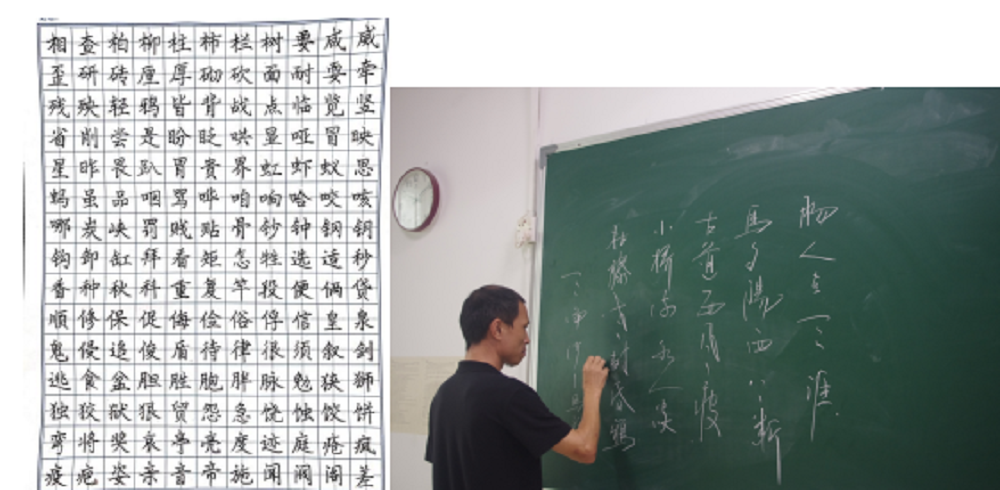 相查柏柳柱柿栏树要咸威
歪研砖厘厚砌砍面耐耍牵
残殃轻鸦皆背战点临览竖
省削尝是盼眨哄显哑冒映
星昨畏趴胃贵界虹虾蚁思
蚂虽品咽骂哗咱响哈咬咳
哪炭峡罚贱贴骨钞钟钢钥
钩卸缸拜看矩怎牲选适秒
香种秋科重复竿段便俩贷
顺修保促侮俭俗俘信皇泉
鬼侵追俊盾待律很须叙剑
逃食盆胆胜胞胖脉勉狭狮
独狡狱狠贸怨急饶蚀饺饼
弯将奖哀亭亮度迹庭疮疯
疫疤姿亲音帝施闻阀阁差
枯藤老树昏鸦
小橋流水人家
古道西風瘦
馬夕陽西下断
腸人在天涯